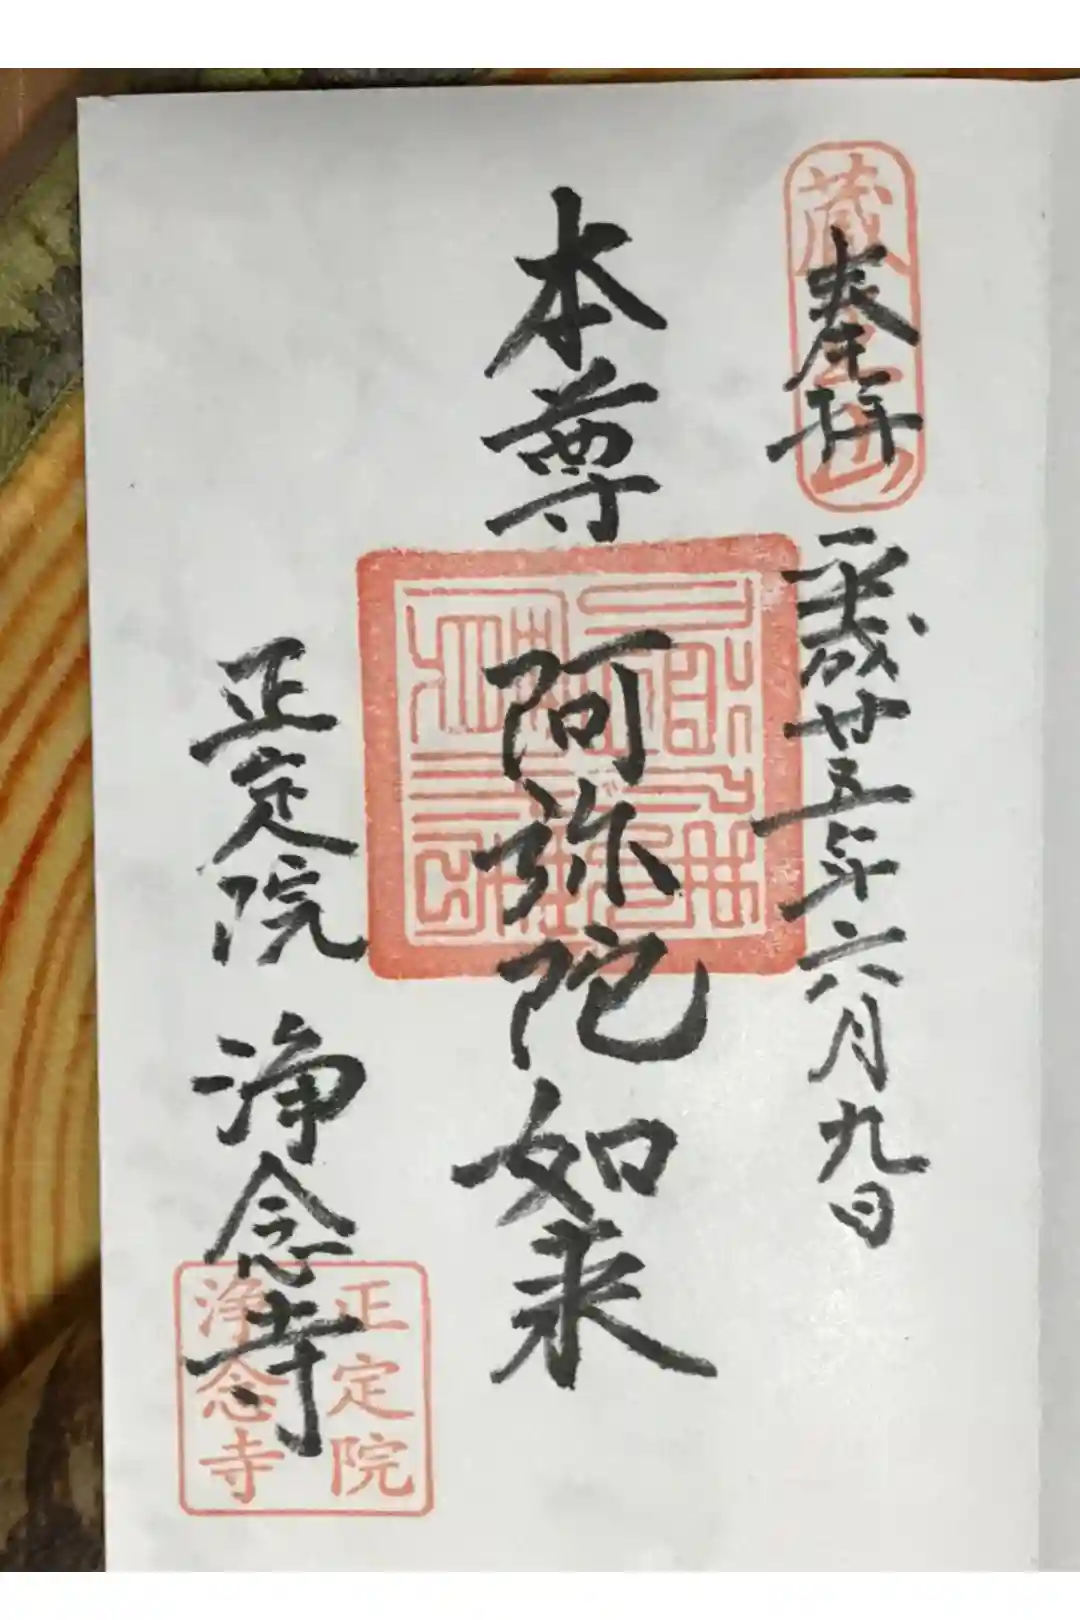 奉拝 平成廿五年六月九日
本尊 阿弥陀如来
正定院 浄念寺
正定院
浄念寺